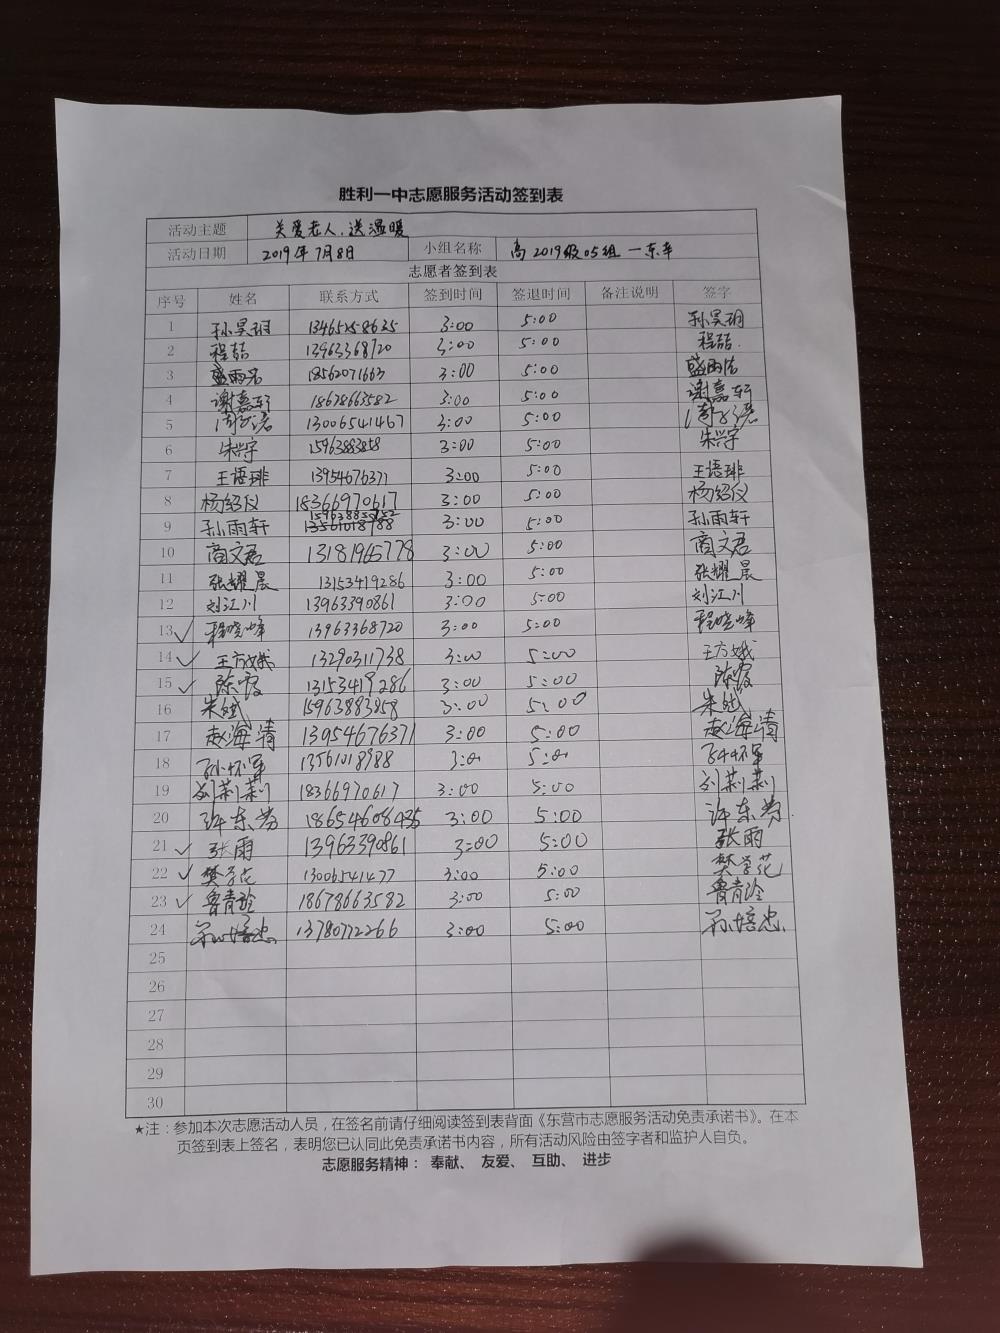 胜利一中志愿服务活动签到表
活动主题 关爱老人，送温暖
活动日期 2019年7月8日 小组名称 高2019级05组—东辛
志愿者签到表
序号 姓名 联系方式 签到时间 签退时间 备注说明 签字
1 孙昊玥 3:00 5:00 孙昊玥
2 程喆 13963368720 3:00 5:00 程喆
3 盛雨洁 18562071663 3:00 5:00 盛雨洁
4 谢嘉轩 18678663582 3:00 5:00 谢嘉轩
5 13006541467 3:00 5:00
6 朱兴宇 15963883858 3:00 5:00 朱兴宇
7 王语琲 13954676371 3:00 5:00 王语琲
8 杨绍仪 18366970617 3:00 5:00 杨绍仪
9 孙雨轩 3:00 5:00 孙雨轩
10 商文君 13181965778 3:00 5:00 商文君
11 张耀晨 13153419286 3:00 5:00 张耀晨
12 刘江川 13963390861 3:00 5:00 刘江川
13 程晓峰 13963368720 3:00 5:00 程晓峰
14 王方娥 13290311738 3:00 5:00 王方娥
15 陈霞 13153419286 3:00 5:00 陈霞
16 朱斌 15963883858 3:00 5:00 朱斌
17 赵海清 13954676371 3:00 5:00 赵海清
18 孙怀军 13561018988 3:00 5:00 孙怀军
19 刘莉莉 18366970617 3:00 5:00 刘莉莉
20 许东芳 3:00 5:00 许东芳
21 张雨 13963390861 3:00 5:00 张雨
22 樊学花 13006541477 3:00 5:00 樊学花
23 鲁青玲 18678663582 3:00 5:00 鲁青玲
24 13780772266 3:00 5:00
25
26
27
28
29
30
★注：参加本次志愿活动人员，在签名前请仔细阅读签到表背面《东营市志愿服务活动免责承诺书》。在本
页签到表上签名，表明您已认同此免责承诺书内容，所有活动风险由签字者和监护人自负。
志愿服务精神： 奉献、 友爱、 互助、 进步